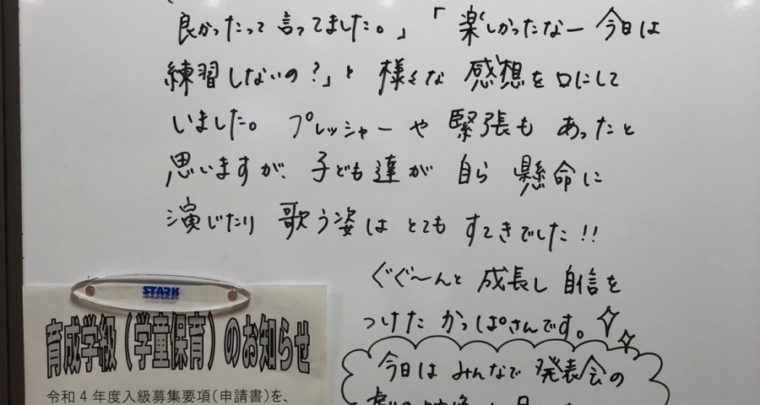 良かったって言ってました。」「楽しかったなー今日は
練習しないの？」と様々な感想を口にして
いました。プレッシャーや緊張もあったと
思いますが、子ども達が自ら懸命に
演じたり歌う姿はとてもすてきでした!!
ぐぐ〜んと成長し自信を
つけたかっぱさんです。
今日はみんなで発表会の
STARK
育成学級（学童保育）のお知らせ
令和4年度入級募集要項(申請書)を、